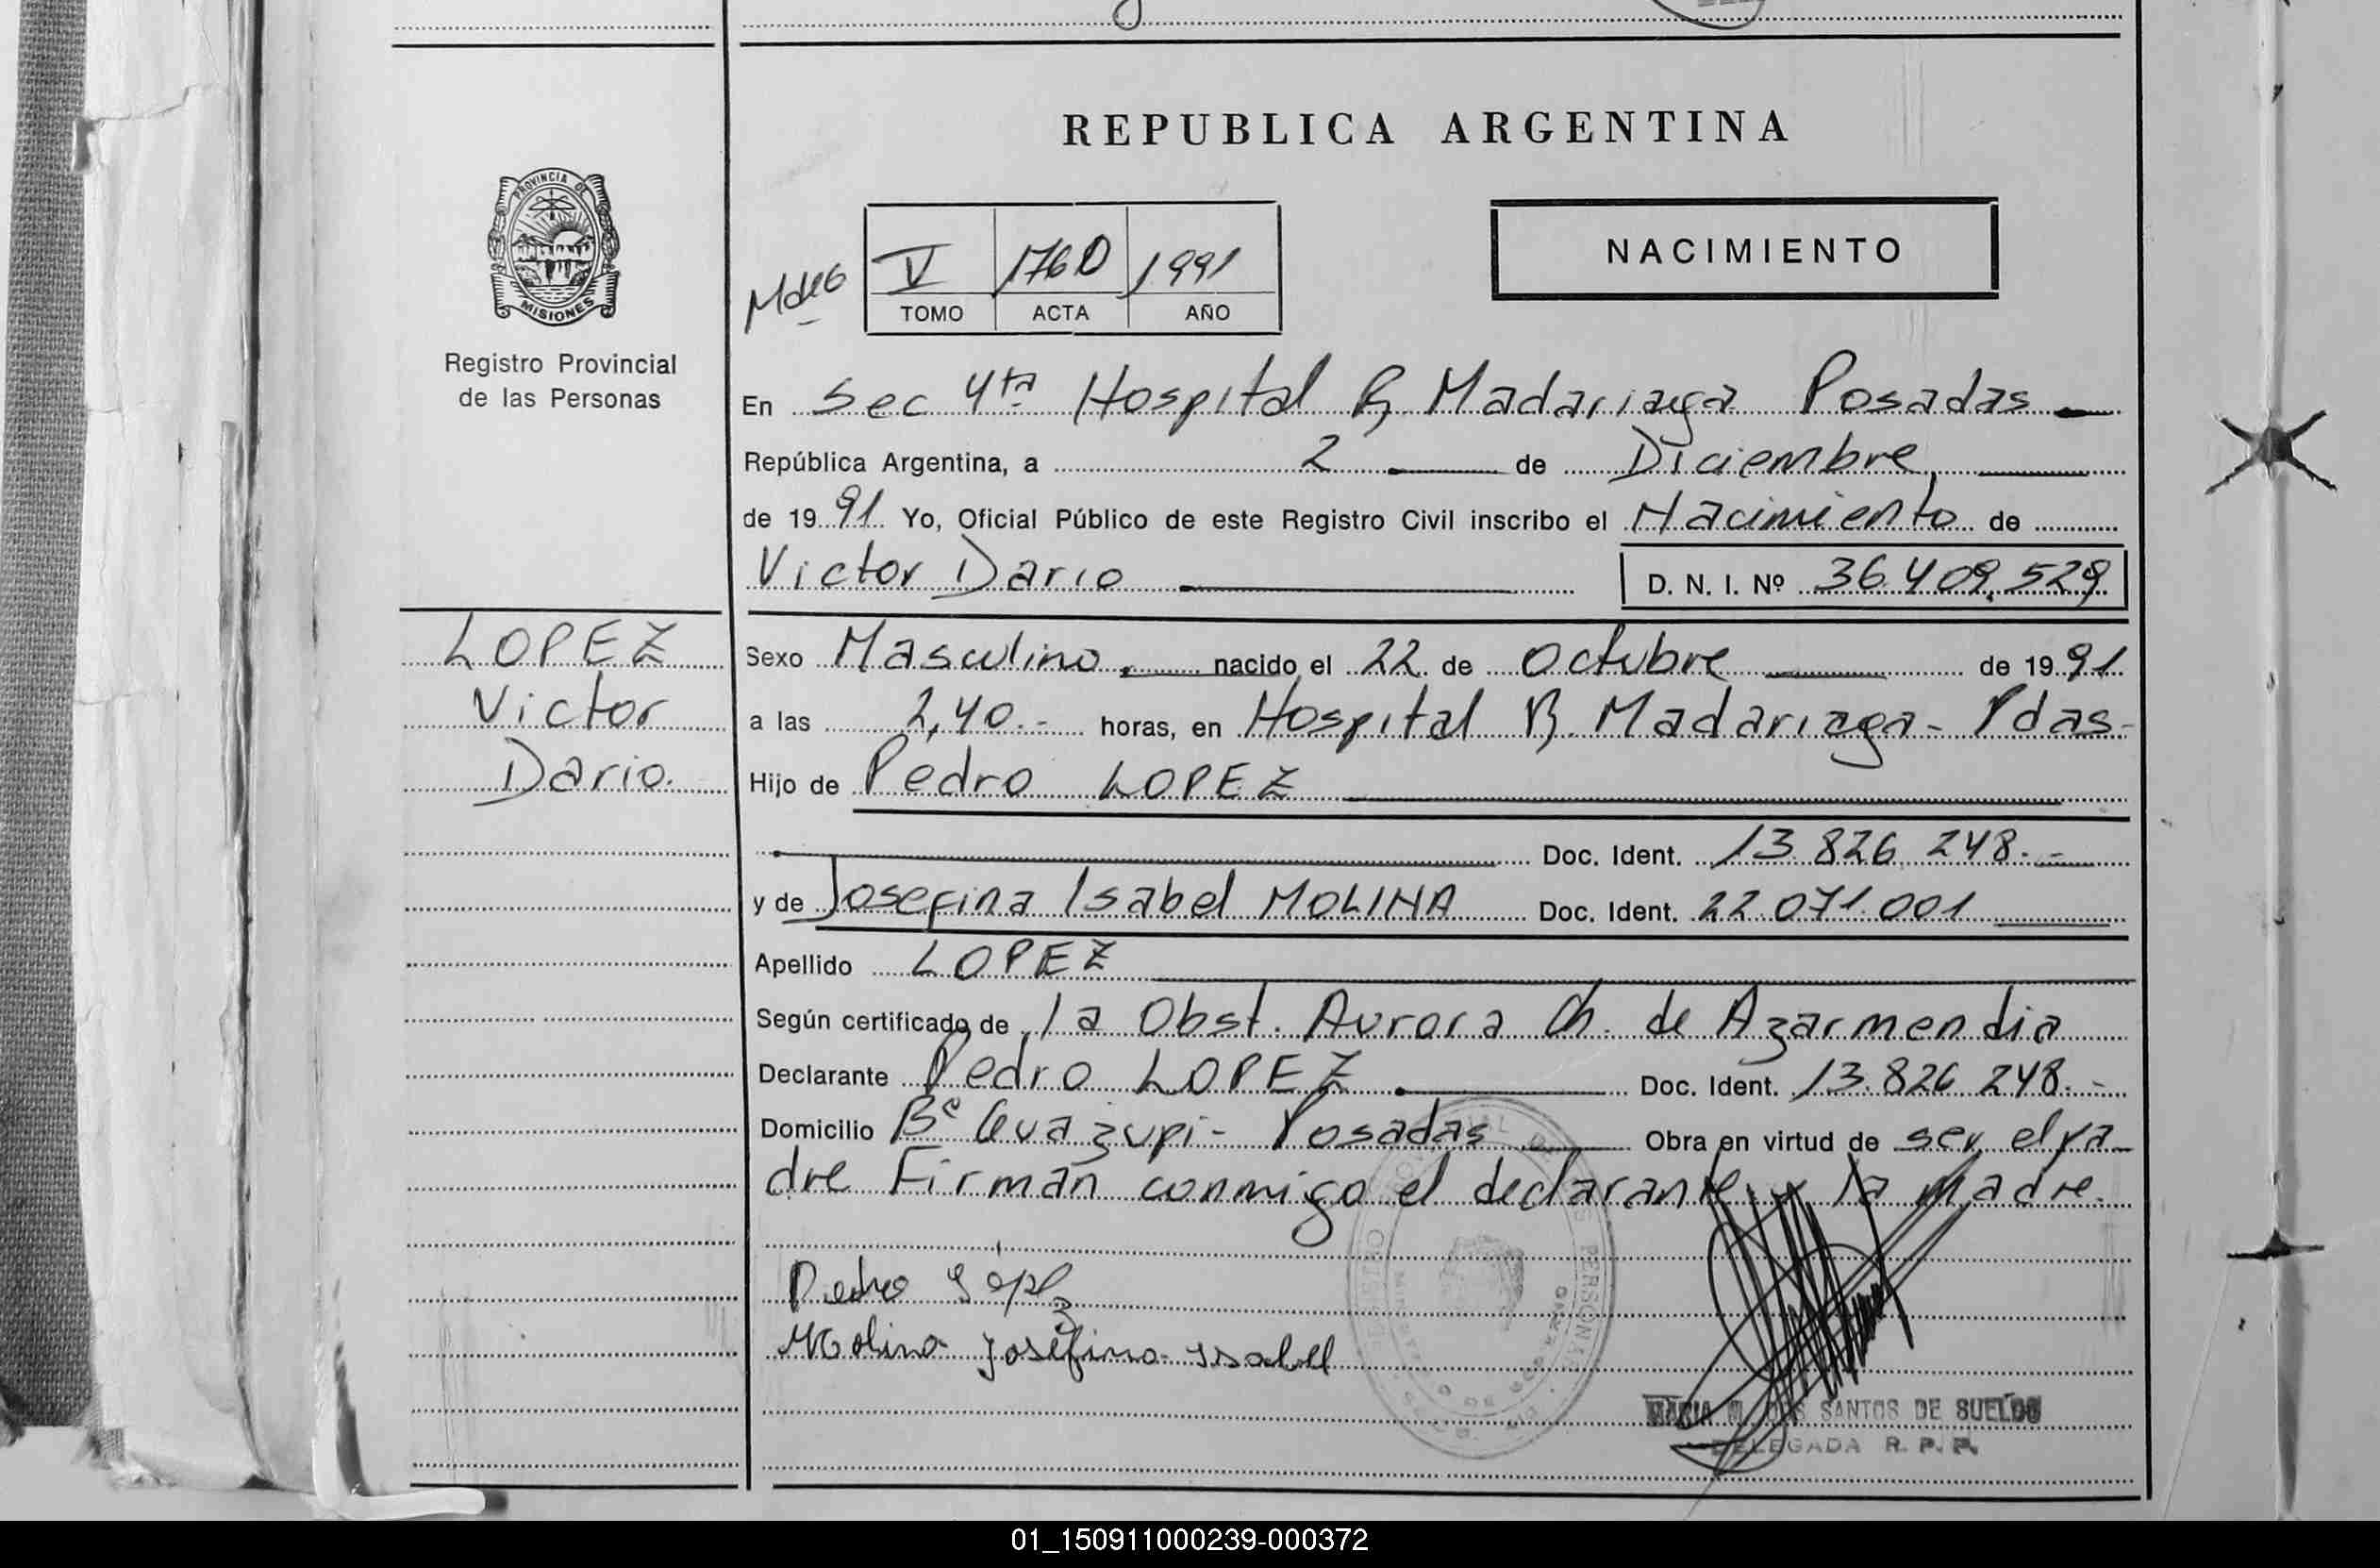 REPUBLICA ARGENTINA
PROVINCIA DE
MISIONES
Registro Provincial
de las Personas
V 1760 1991
TOMO ACTA AÑO
NACIMIENTO
En Sec 4ta Hospital R, Madariaga Posadas
República Argentina, a 2 de Diciembre
de 1991 Yo, Oficial Público de este Registro Civil inscribo el Nacimiento de
Victor Dario D. N. I. Nº 36.409.529
LOPEZ
Victor
Dario.
Sexo Masculino. nacido el 22 de Octubre de 1991
a las 2,40.- horas, en Hospital R. Madariaga - Pdas-
Hijo de Pedro LOPEZ
Doc. Ident. 13.826.248.-
y de Josefina Isabel MOLINA Doc. Ident. 22.071.001
Apellido LOPEZ
Según certificado de la Obst. Aurora Ch. de Azarmendia
Declarante Pedro LOPEZ Doc. Ident. 13.826.248.-
Domicilio Bº Guazupi - Posadas Obra en virtud de ser el pa-
dre Firman conmigo el declarante y la Madre.
Pedro Lopez
Molina Josefina Isabel
MARIA DOS SANTOS DE SUELDO
DELEGADA R. P. P.
01_150911000239-000372